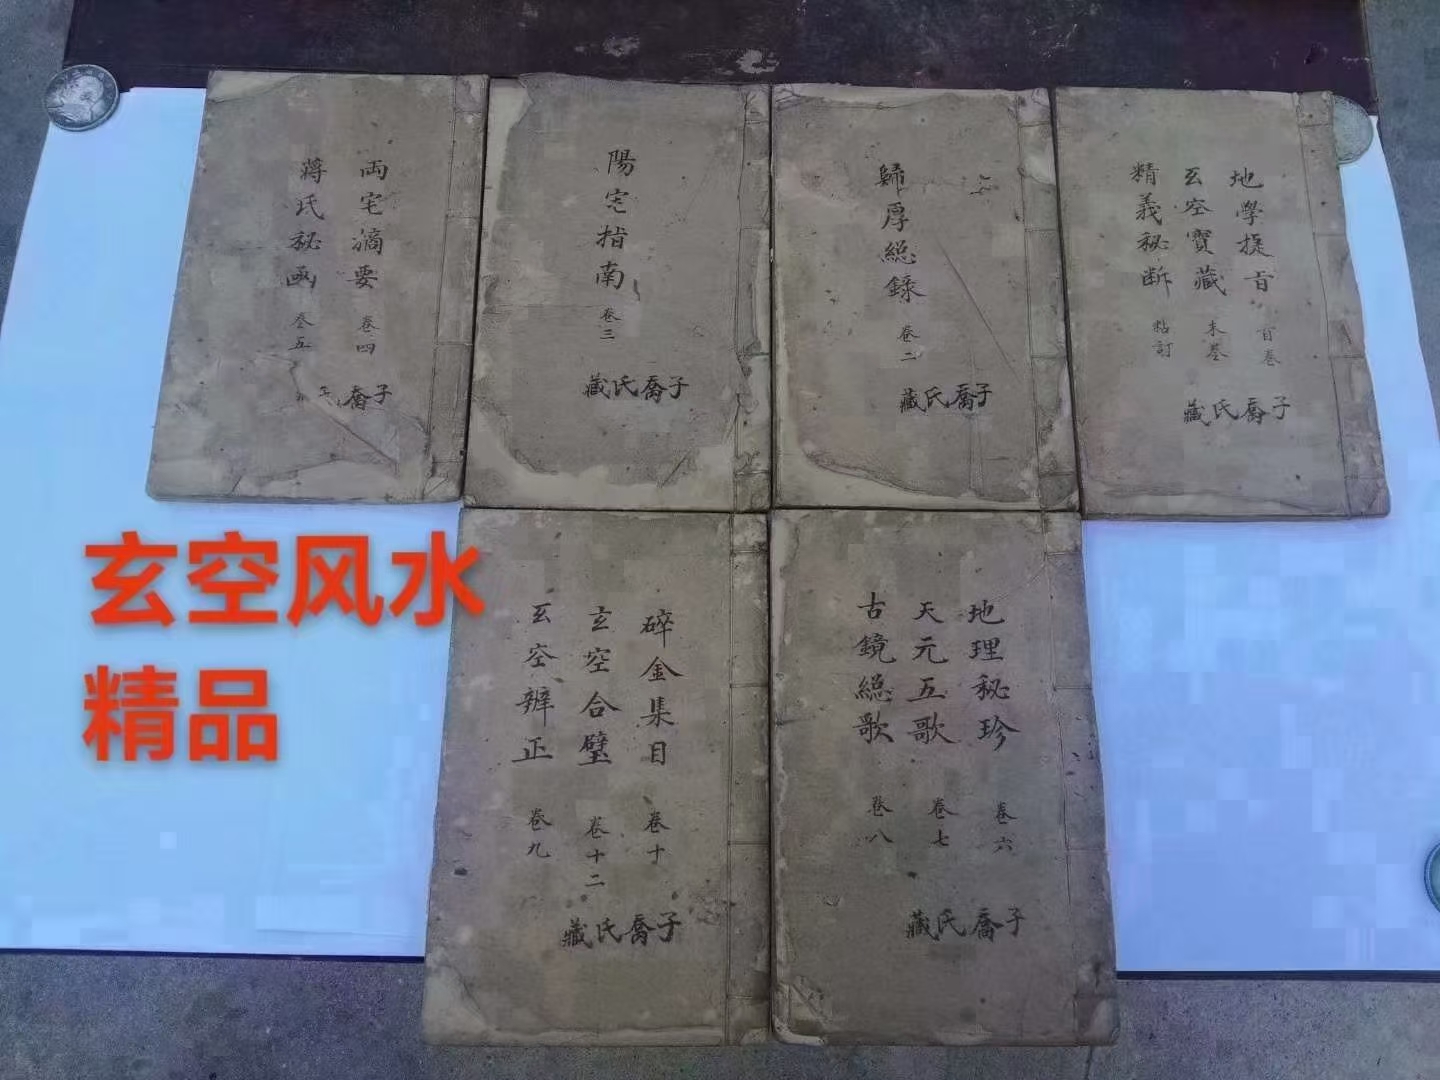 地學捷旨 首卷
玄空寶藏 末卷
精義秘断 粘訂
子喬氏藏
歸厚總錄 卷二
子喬氏藏
陽宅指南 卷三
子喬氏藏
両宅摘要 卷四
蔣氏秘函 卷五
子喬
地理秘珍 卷六
天元五歌 卷七
古鏡總歌 卷八
子喬氏藏
碎金集目 卷十
玄空合璧 卷十二
玄空辨正 卷九
子喬氏藏
玄空风水
精品